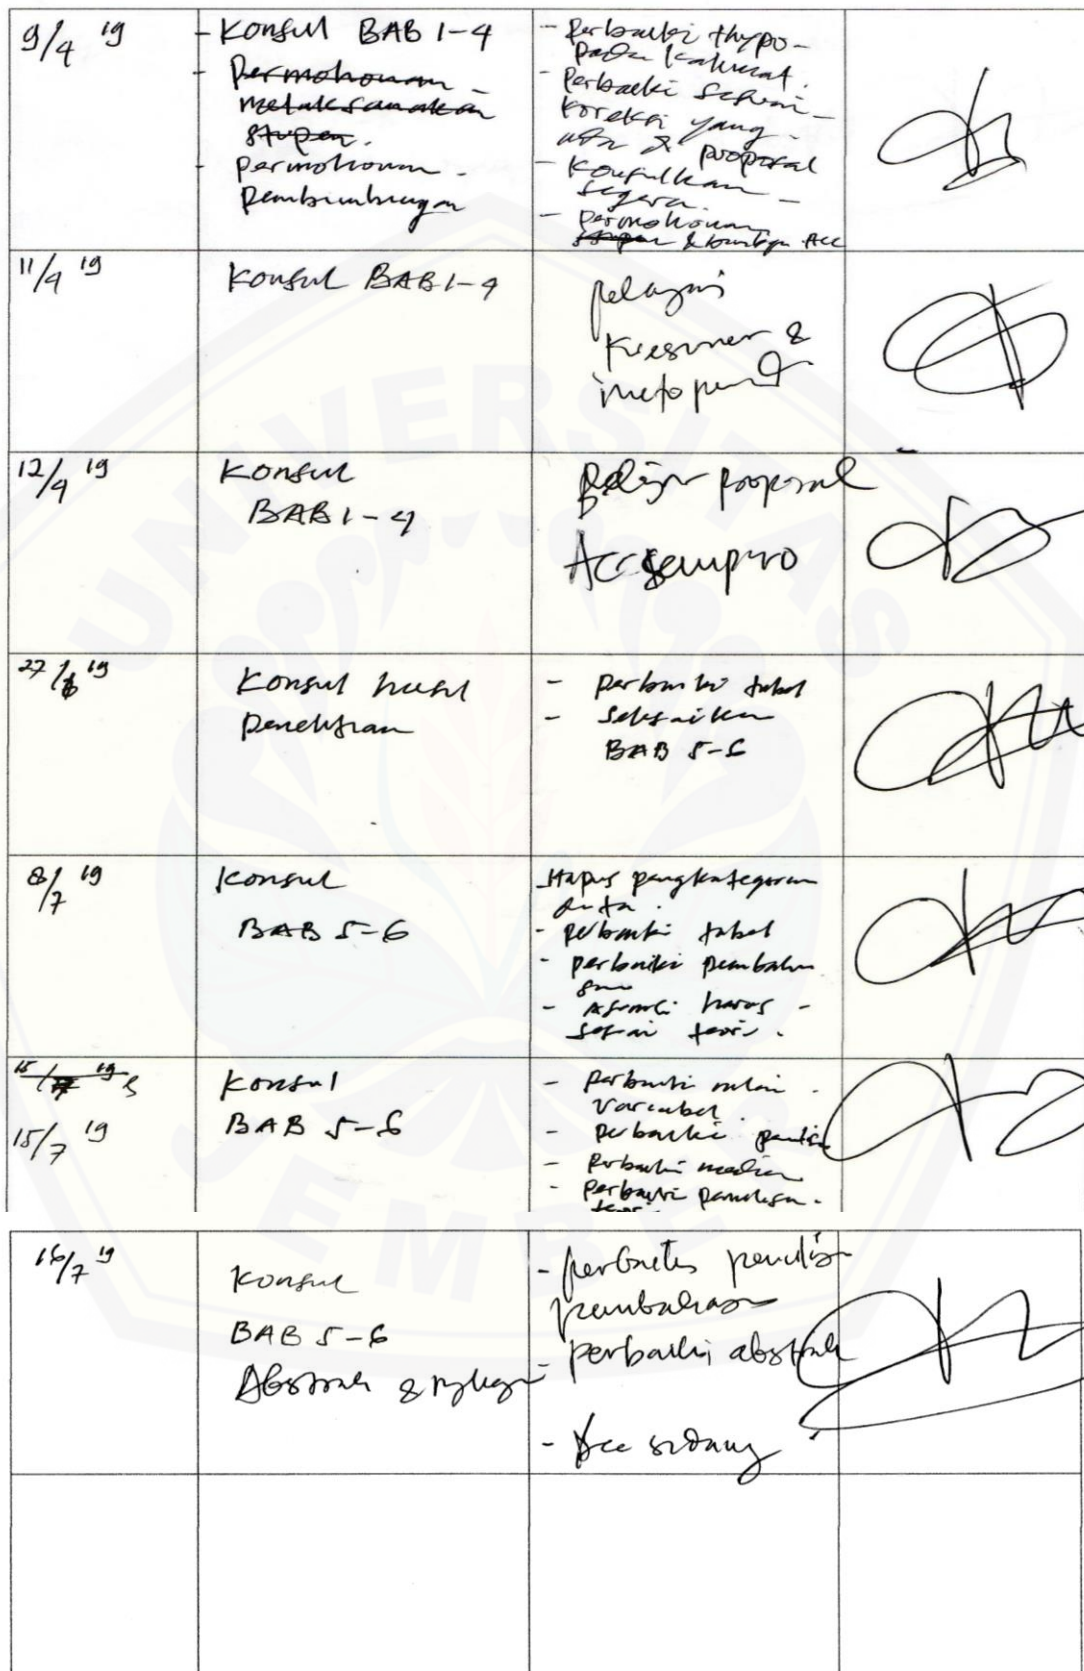 9/4 '19
- Konsul BAB 1-4
- Permohonan
melaksanakan
stupen.
- permohonan
Pembimbingan
- Perbaiki thypo
pada kalimat.
- Perbaiki sesuai
koreksi yang
ada & proposal
- Konsulkan
segera.
- permohonan
stupen & Acc
11/4 '19
Konsul BAB 1-4
pelajari
Kuesioner &
12/4 '19
Konsul
BAB 1-4
proposal
Acc sempro
27/6 '19
Konsul hasil
penelitian
- perbaiki tabel
- Selesaikan
BAB 5-6
8/7 '19
Konsul
BAB 5-6
Hapus pengkategorian
data.
- perbaiki tabel
- perbaiki pembaha
san
- Asumsi harus
sesuai teori.
15/7 '19
15/7 '19
Konsul
BAB 5-6
- perbaiki nilai
variabel.
- perbaiki penulisan
- perbaiki median
- perbaiki penulisan
teori
16/7 '19
Konsul
BAB 5-6
Abstrak &
- perbaiki penulisan
pembahasan
- perbaiki abstrak
- Acc sidang
UNIVERSITAS
JEMBER